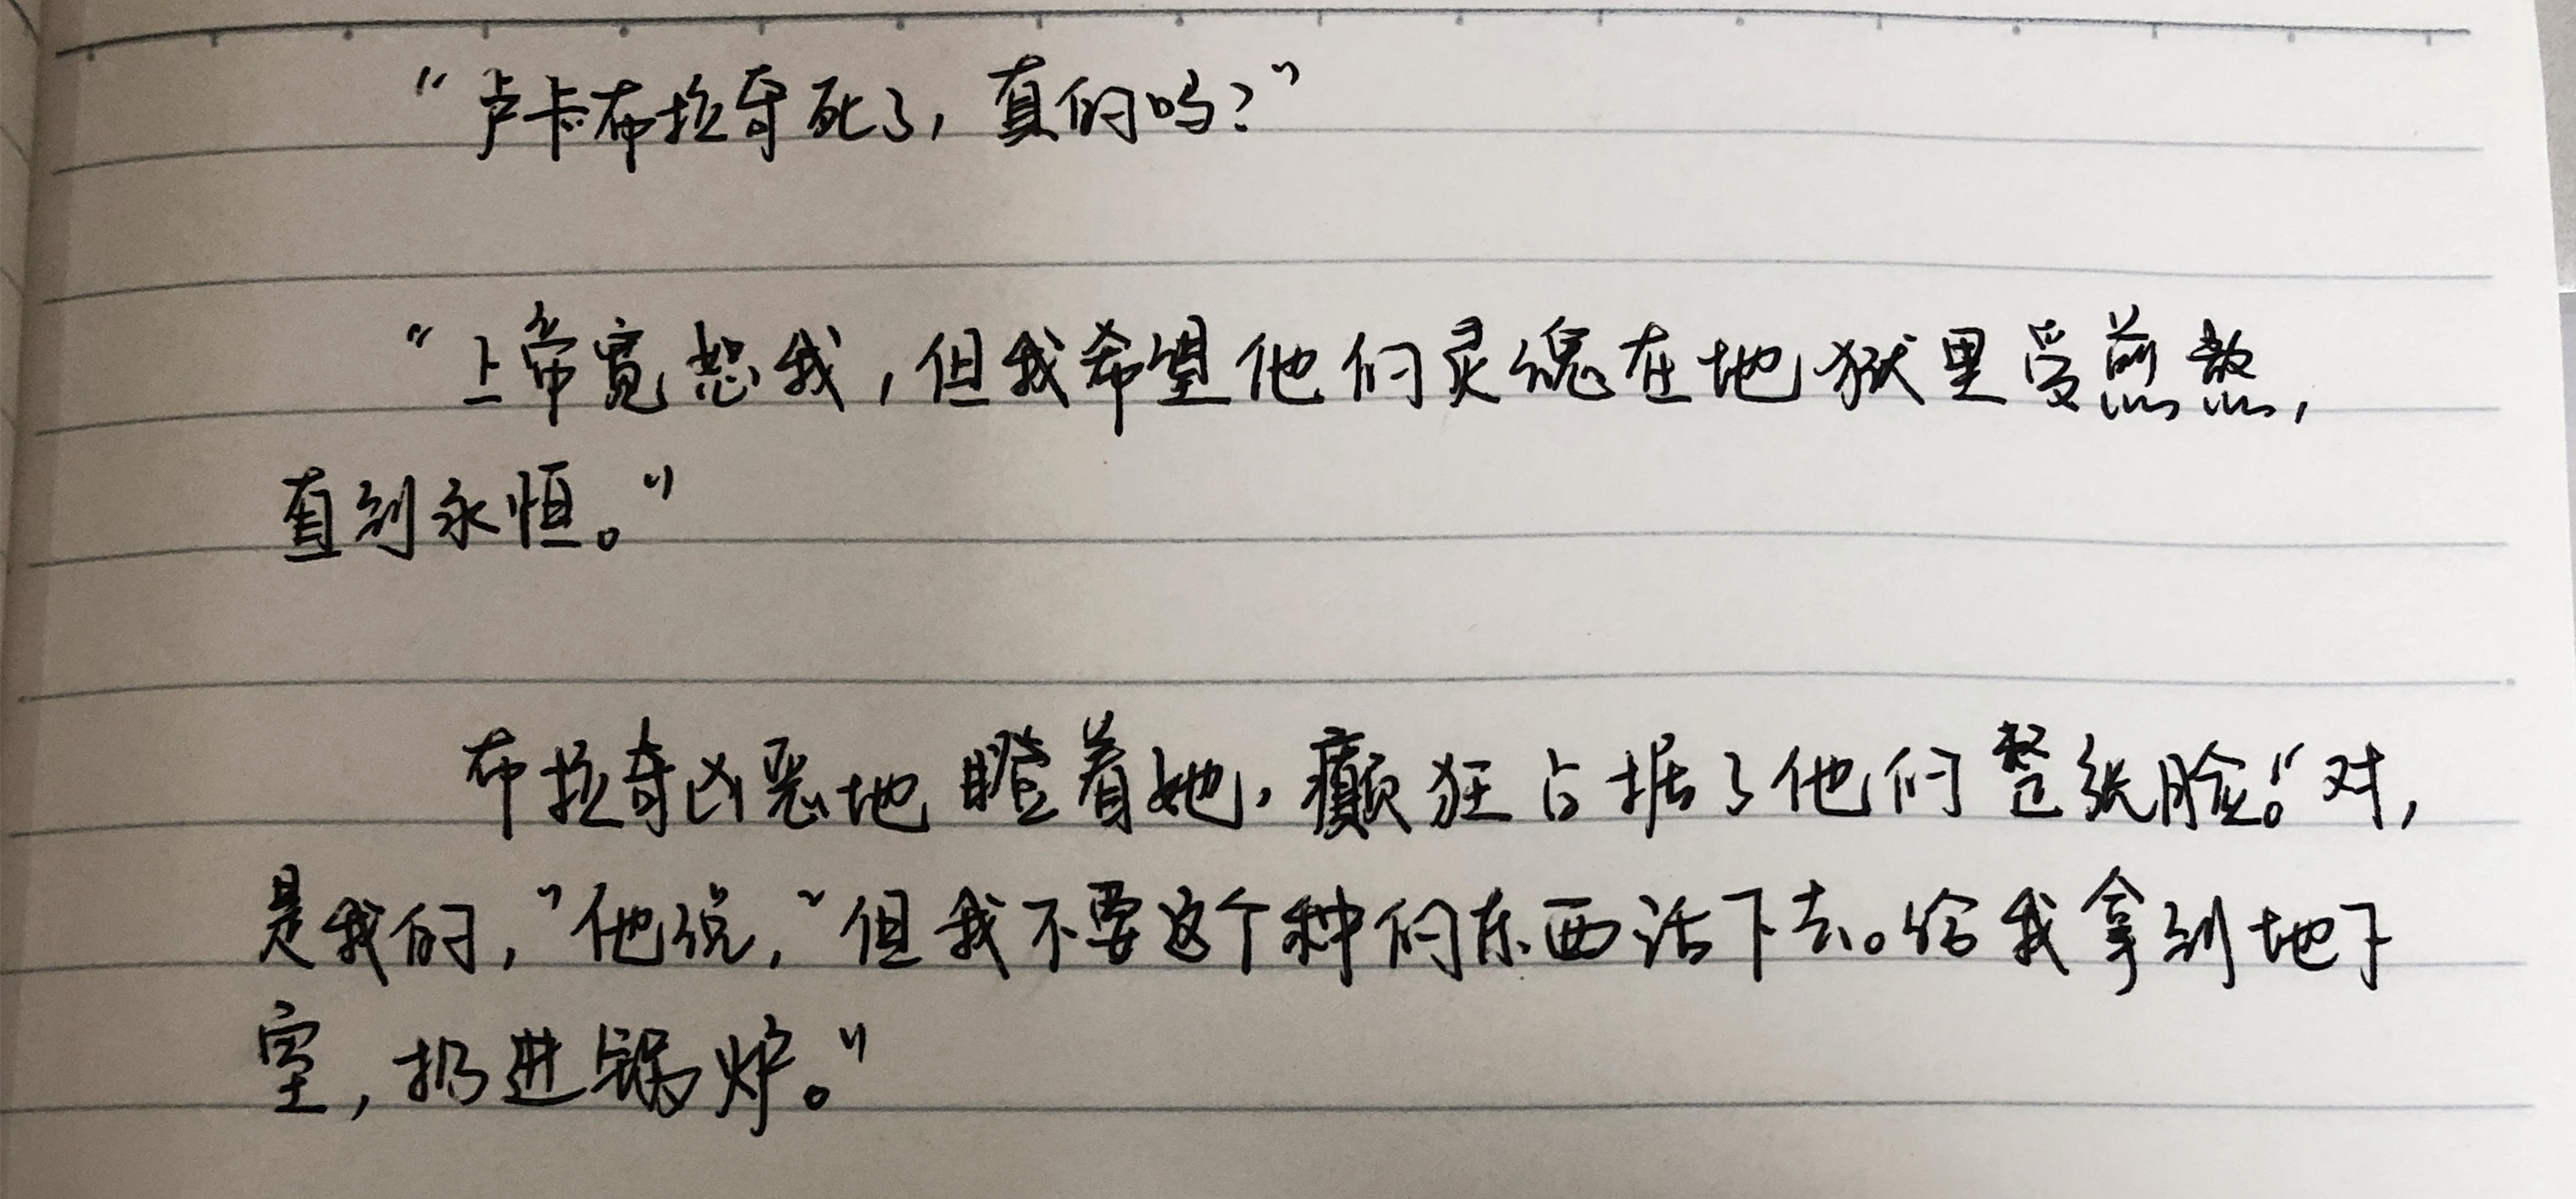 “卢卡布拉奇死了，真的吗？”
“上帝宽恕我，但我希望他们灵魂在地狱里受煎熬，
直到永恒。”
布拉奇凶恶地瞪着她，癫狂占据了他们整张脸。“对，
是我的，”他说，“但我不要这个种的东西活下去。给我拿到地下
室，扔进锅炉。”